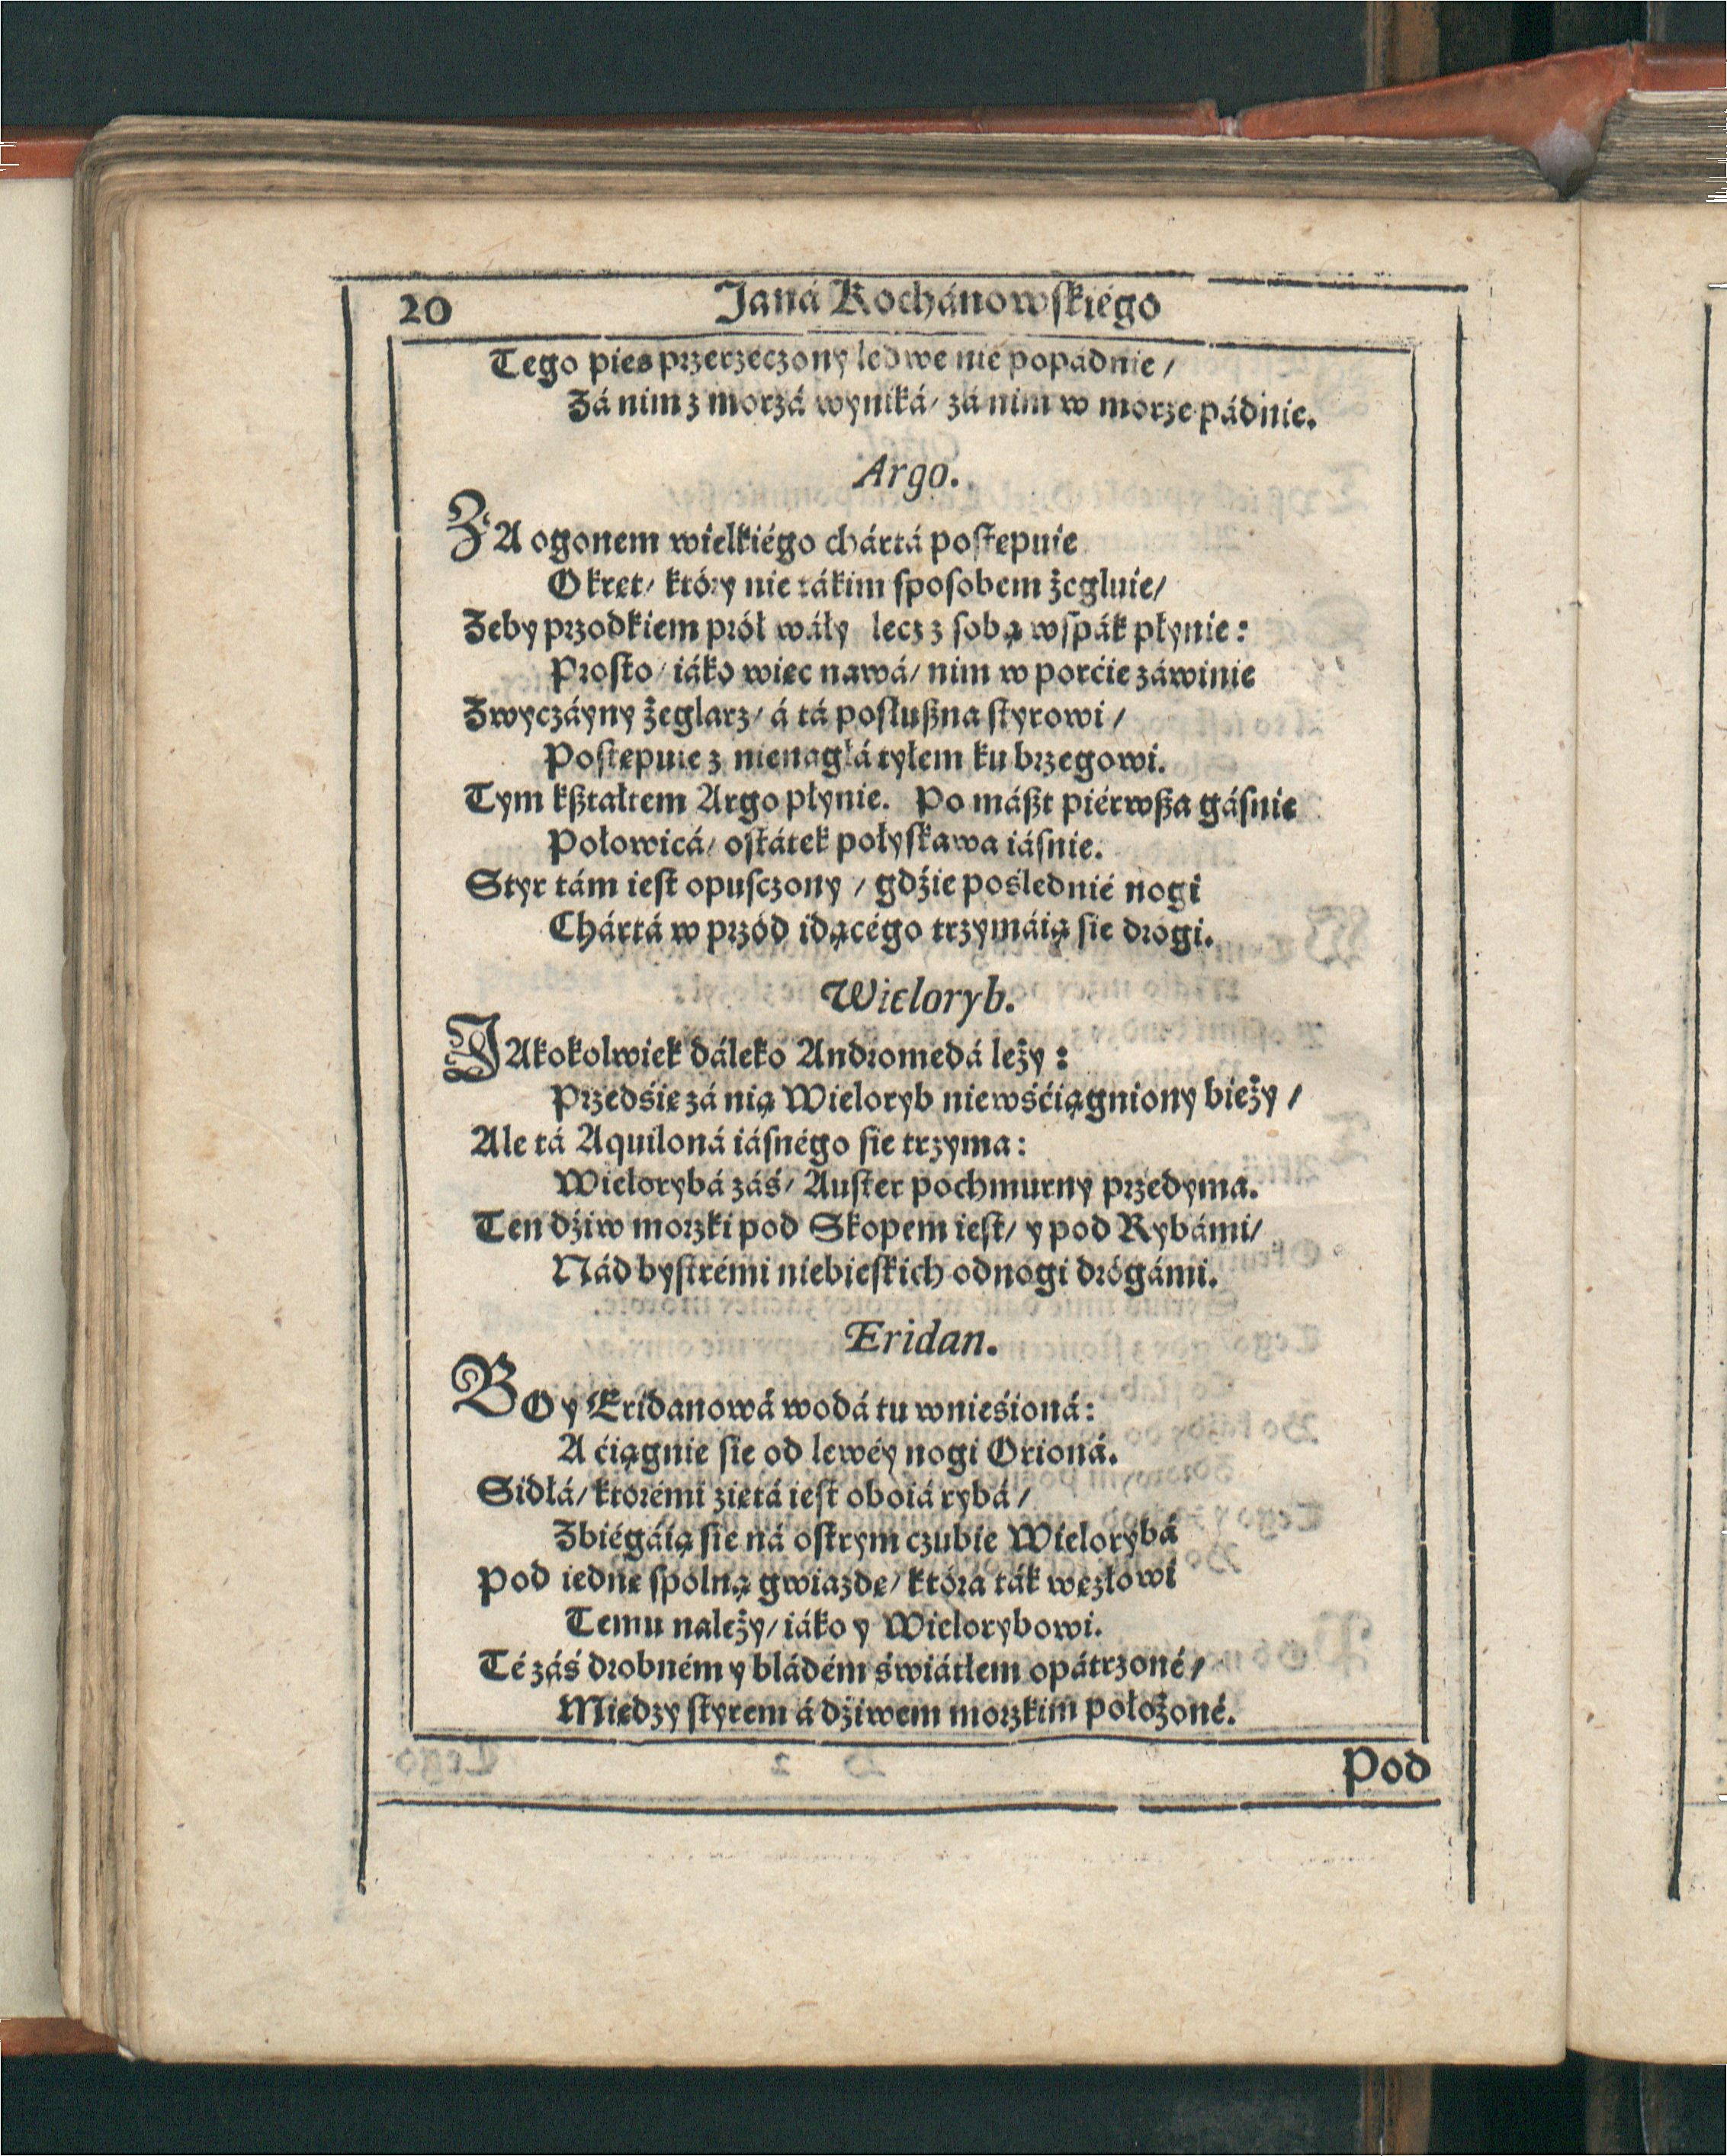 20 Janá Kochánowſkiégo
Tego pies przerzeczony ledwe nie popádnie /
Zá nim z morzá wyniká / zá nim w morze pádnie.
Argo.
ZA ogonem wielkiégo chártá poſtepuie
Okręt / który nie tákim ſpoſobem żegluie /
Zeby przodkiem prół wáły lecz z ſobą wſpák płynie :
Proſto / iáko więc nawá / nim w porćie záwinie
Zwyczáyny żeglarz / á tá poſlußna ſtyrowi /
Poſtępuie z nienagłá tyłem ku brzegowi.
Tym kßtałtem Argo płynie. Po máßt piérwßa gáſnie
Połowicá / oſtátek połyſkawa iáſnie.
Styr tám ieſt opuſczony / gdźie poślednié nogi
Chártá w przód idącégo trzymáią ſie drógi.
Wieloryb.
JAkokolwiek dáleko Andromedá leży :
Przedśię zá nią Wieloryb niewśćiągniony bieży /
Ale tá Aquiloná iáſnégo ſie trzyma :
Wielorybá záś / Auſter pochmurny przedyma.
Ten dźiw morzki pod Skopem ieſt / y pod Rybámi /
Nád byſtrémi niebieſkich odnogi drógámi.
Eridan.
BO y Eridanowá wodá tu wnieśioná :
A ćiągnie ſie od lewéy nogi Orioná.
Sidłá / ktorémi zięta ieſt oboiá rybá /
Zbiégáią ſie ná oſtrym czubie Wielorybá
Pod iednę ſpolną gwiazdę / która ták węzłowi
Temu należy / iáko y Wielorybowi.
Té záś drobném y bládém świátłem opátrzoné /
Między ſtyrem á dźiwem morzkim położoné.
Pod